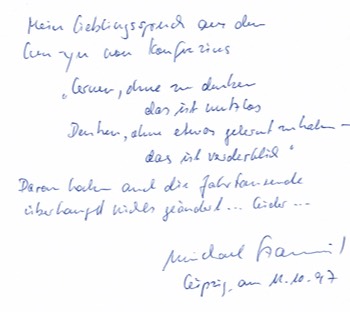 Mein Lieblingsspruch aus dem
Lun-yu von Konfuzius
"Lernen, ohne zu denken
das ist nutzlos
Denken, ohne etwas gelernt zu haben –
das ist verderblich"
Daran haben auch die Jahrtausende
überhaupt nichts geändert... leider...
Michael
Leipzig, am 11.10.97